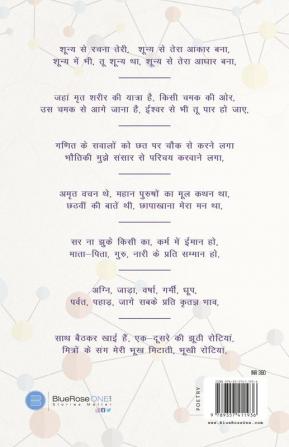 शून्य से रचना तेरी, शून्य से तेरा आकार बना,
शून्य में भी, तू शून्य था, शून्य से तेरा आधार बना,
जहां मृत शरीर की यात्रा है, किसी चमक की ओर,
उस चमक से आगे जाना है, ईश्वर से भी तू पार हो जाए,
गणित के सवालों को छत पर चौक से करने लगा
भौतिकी मुझे संसार से परिचय करवाने लगा,
अमृत वचन थे, महान पुरुषों का मूल कथन था,
छठवीं की बातें थी, छापाखाना मेरा मन था,
सर ना झुके किसी का, कर्म में ईमान हो,
माता-पिता, गुरु, नारी के प्रति सम्मान हो,
अग्नि, जाड़ा, वर्षा, गर्मी, धूप,
पर्वत, पहाड़, जागे सबके प्रति कृतज्ञ भाव,
साथ बैठकर खाई हैं, एक-दूसरे की झूठी रोटियां,
मित्रों के संग मेरी भूख मिटाती, भूखी रोटियां,
BlueRose ONE
Stories Matter
POETRY
INR 380
www.BlueRoseOne.com